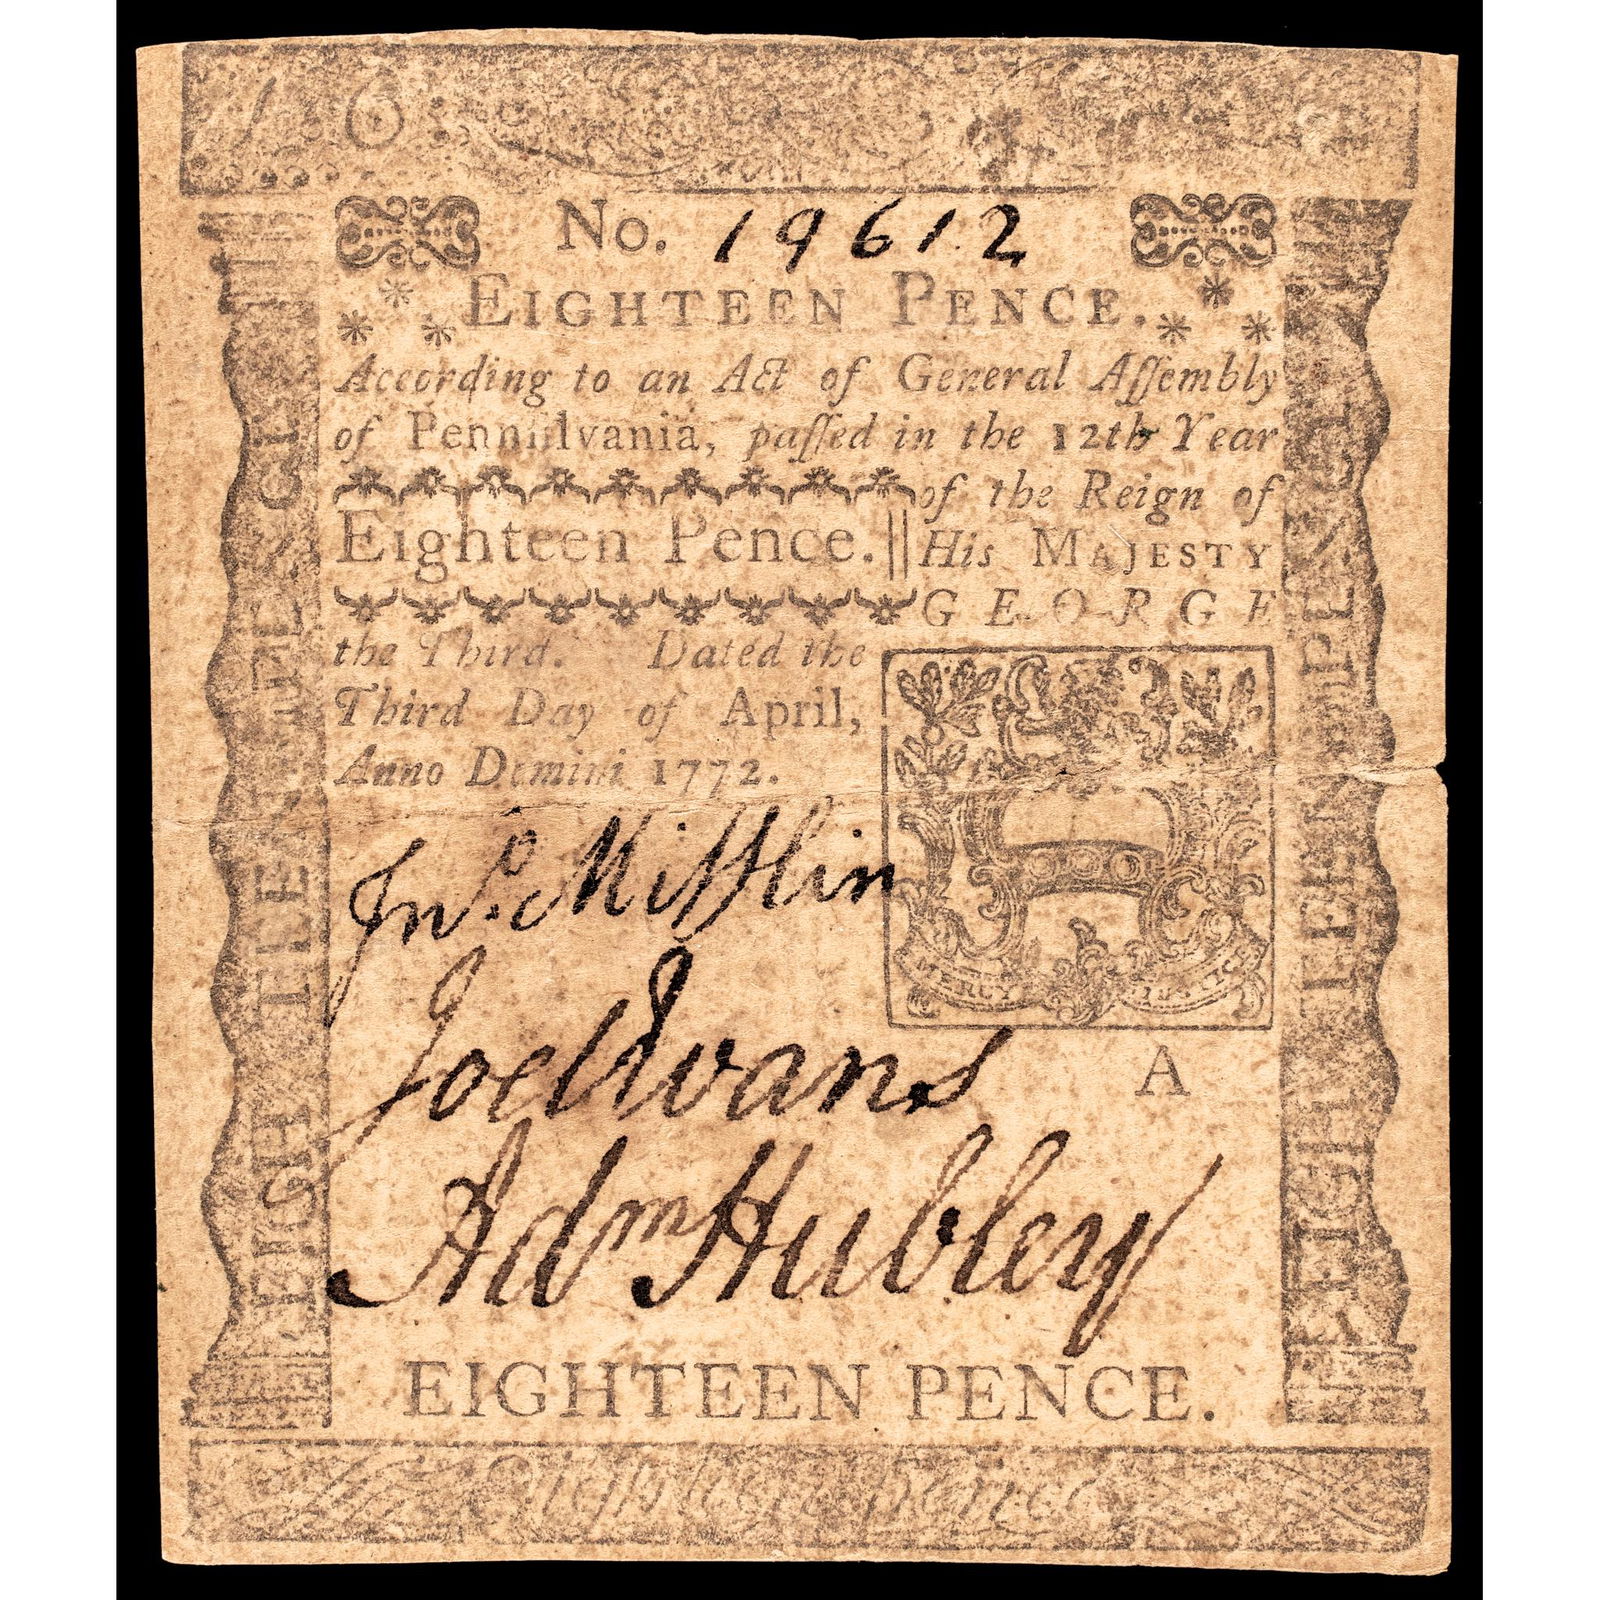 1 6
No. 19612
EIGHTEEN PENCE.
According to an Act of General Aſſembly
of Pennſilvania, paſſed in the 12th Year
of the Reign of
Eighteen Pence. His MAJESTY
GEORGE
the Third. Dated the
Third Day of April,
Anno Domini 1772.
Jnº. Mifflin
Joel Evans
Adm Hubley
MERCY JUSTICE
A
EIGHTEEN PENCE.
Eighteen pence
EIGHTEEN PENCE
EIGHTEEN PENCE